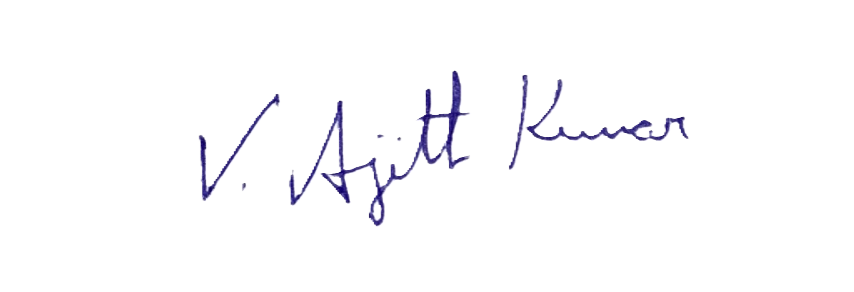 V. Ajitt Kumar